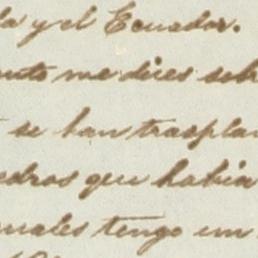 la y el Ecuador.
me dices
se han trasplan
edros que habia
uales tengo un